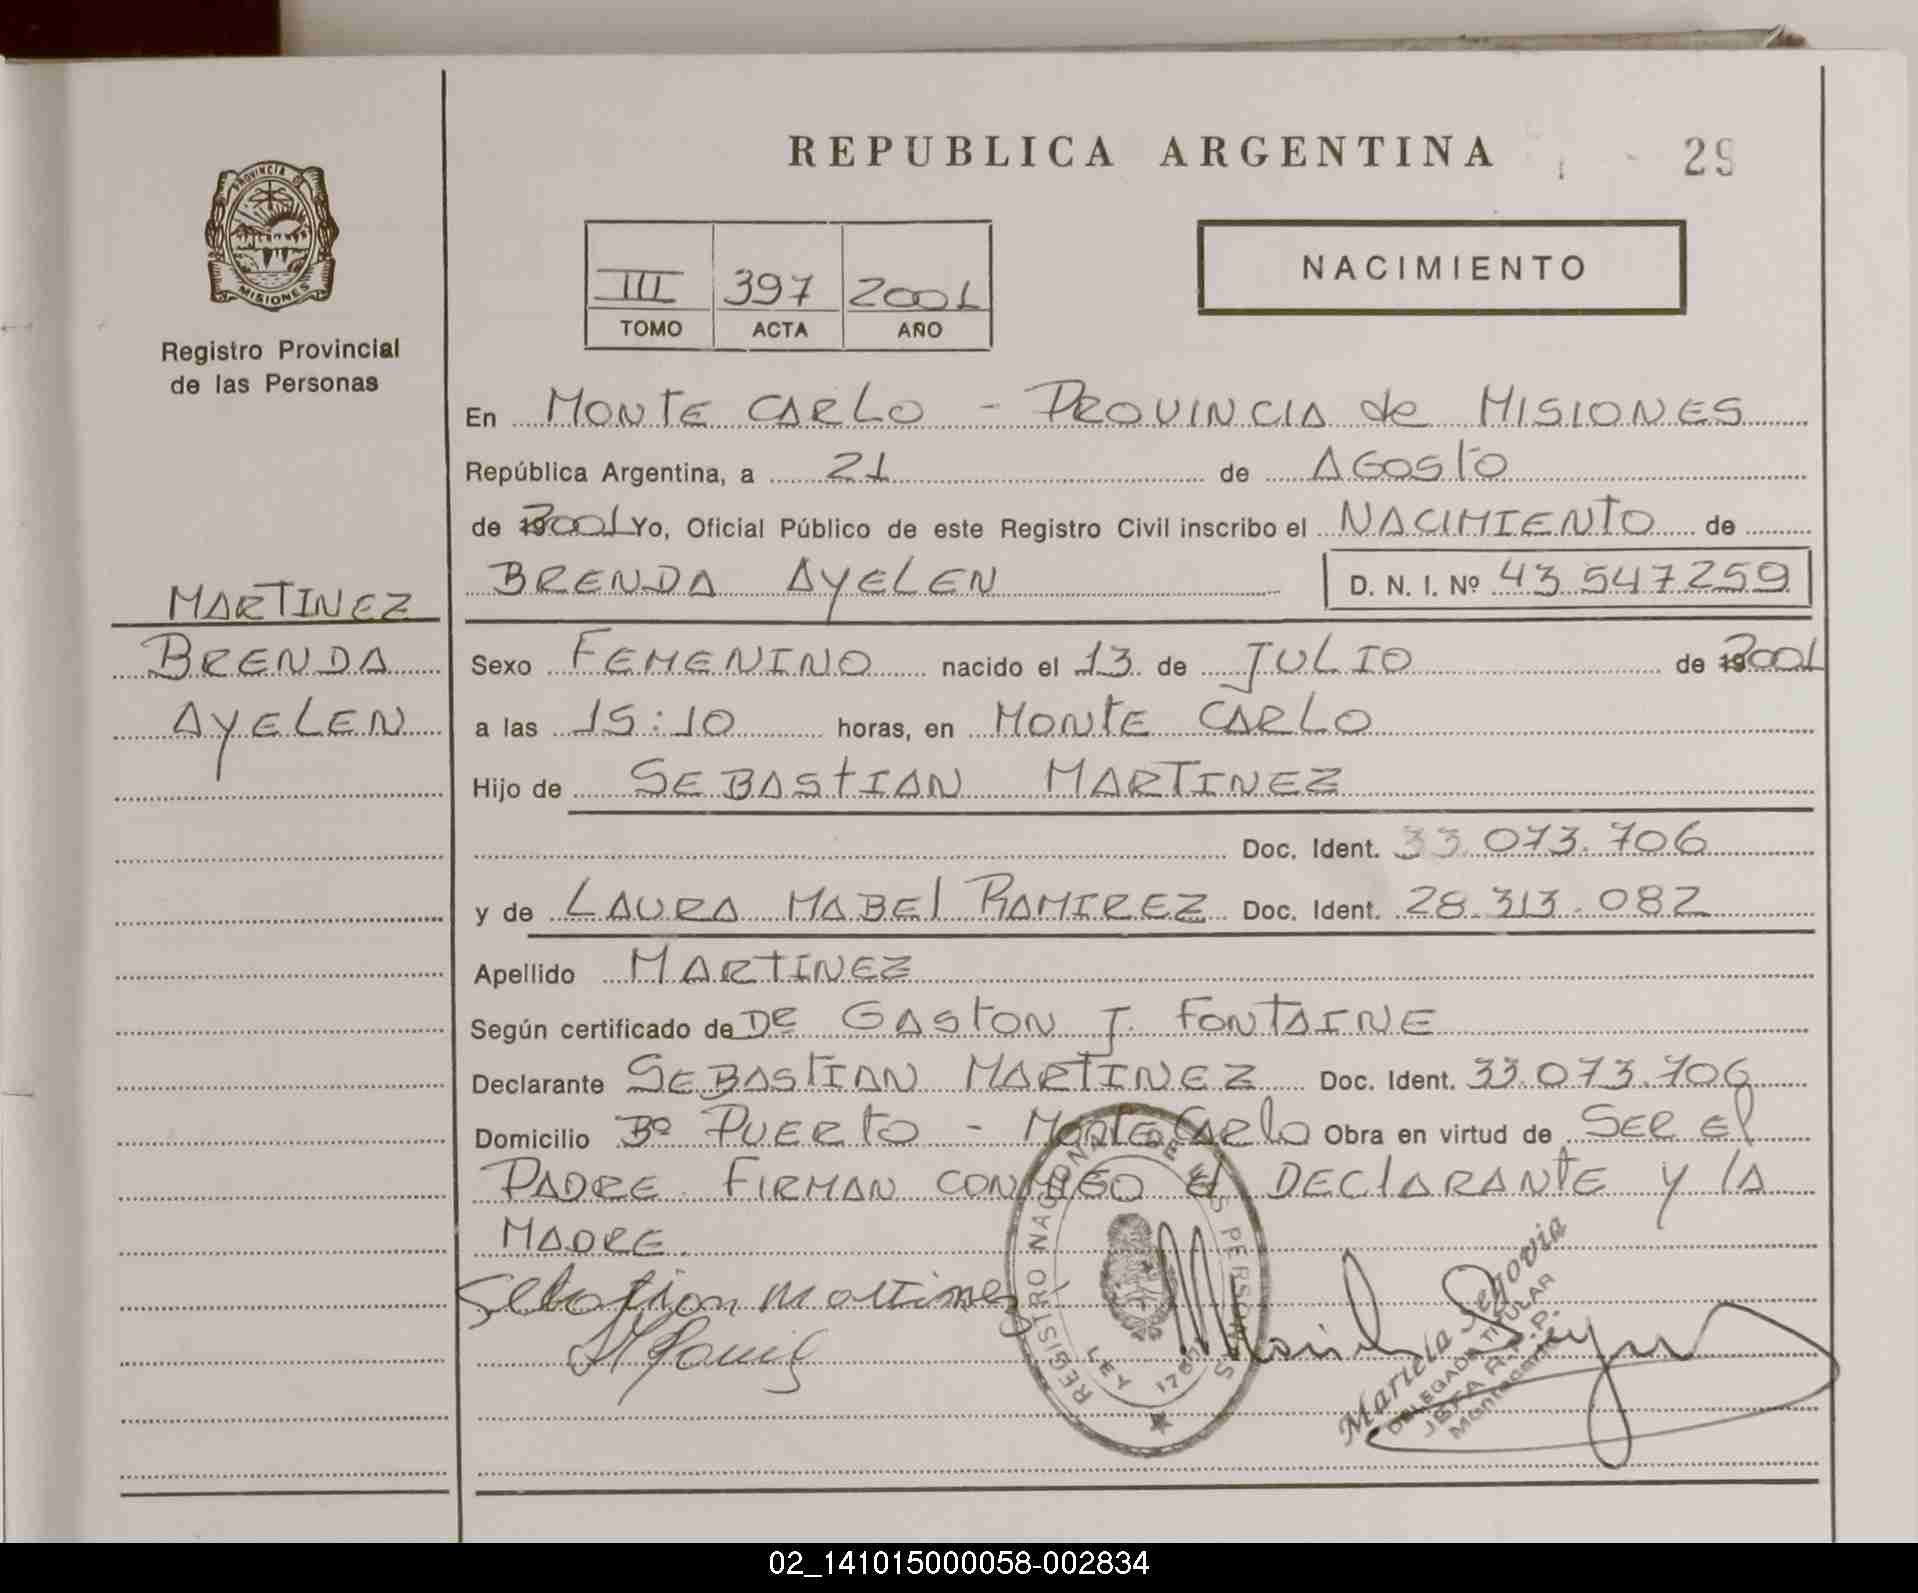 REPUBLICA ARGENTINA
29
PROVINCIA DE
MISIONES
Registro Provincial
de las Personas
III 397 2001
TOMO ACTA AÑO
NACIMIENTO
En MONTE CARLO - PROVINCIA de MISIONES
República Argentina, a 21 de AGOSTO
de 2001 Yo, Oficial Público de este Registro Civil inscribo el NACIMIENTO de
BRENDA AYELEN D. N. I. Nº 43.547259
MARTINEZ
BRENDA
AYELEN
Sexo FEMENINO nacido el 13 de JULIO de 2001
a las 15:10 horas, en MONTE CARLO
Hijo de SEBASTIAN MARTINEZ
Doc. Ident. 33.073.706
y de LAURA MABEL RAMIREZ Doc. Ident. 28.313.082
Apellido MARTINEZ
Según certificado de DE GASTON J. FONTAINE
Declarante SEBASTIAN MARTINEZ Doc. Ident. 33.073.706
Domicilio Bº PUERTO - MONTE CARLO Obra en virtud de SER El
PADRE. FIRMAN CONMIGO El DEClARANTE Y lA
MADRE.
Sebastian Martinez
REGISTRO NACIONAL DE LAS PERSONAS
LEY
Mariela Segovia
DELEGADA TITULAR
JEFA R.P.P.
Montecarlo
02_141015000058-002834